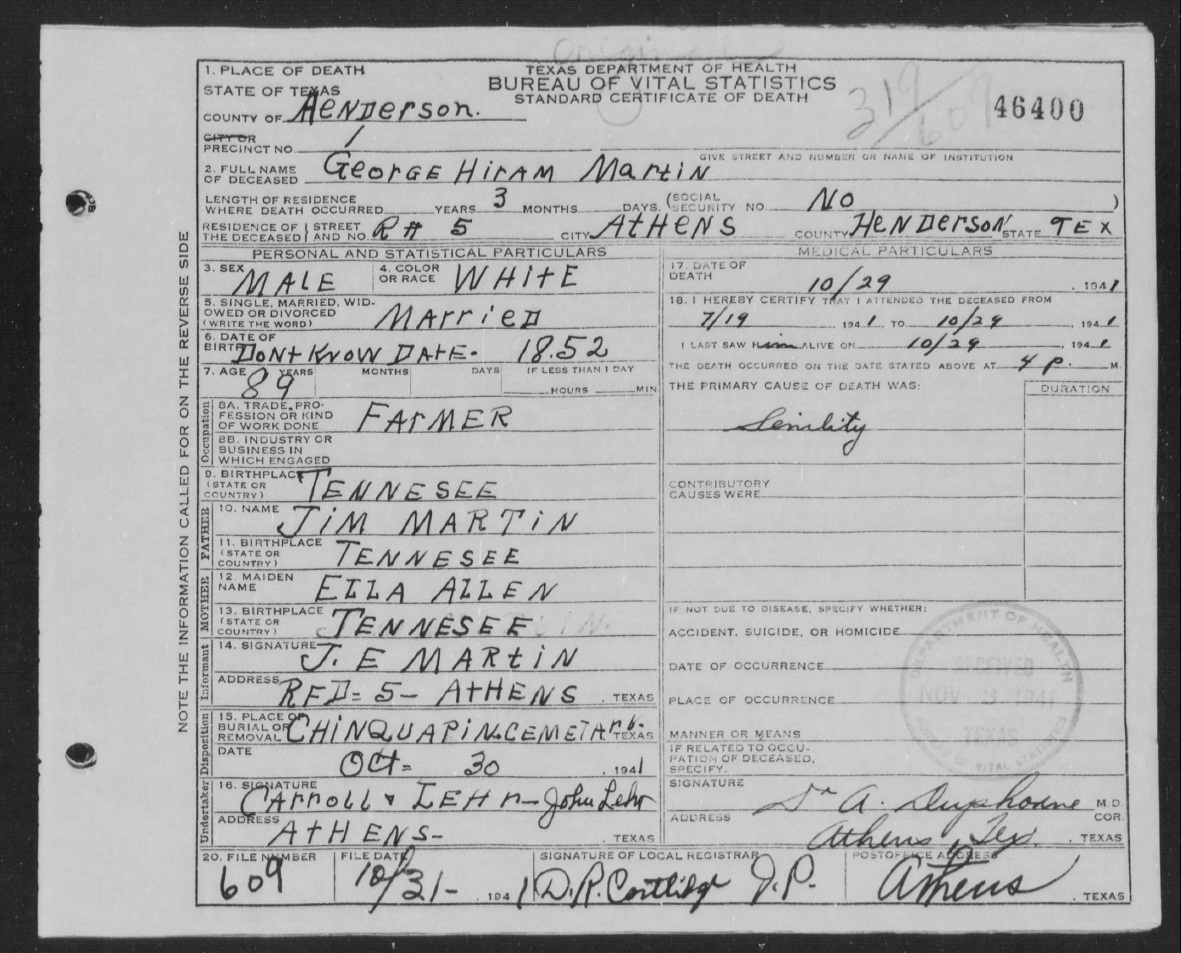 Original
1. PLACE OF DEATH
STATE OF TEXAS
COUNTY OF Henderson.
CITY OR
PRECINCT NO. 1
TEXAS DEPARTMENT OF HEALTH
BUREAU OF VITAL STATISTICS
STANDARD CERTIFICATE OF DEATH
319/609
46400
GIVE STREET AND NUMBER OR NAME OF INSTITUTION
2. FULL NAME OF DECEASED George Hiram Martin
LENGTH OF RESIDENCE WHERE DEATH OCCURRED YEARS 3 MONTHS DAYS. (SOCIAL SECURITY NO. No )
RESIDENCE OF THE DECEASED STREET AND NO. R# 5 CITY Athens COUNTY Henderson STATE Tex
PERSONAL AND STATISTICAL PARTICULARS
3. SEX Male 4. COLOR OR RACE White
5. SINGLE, MARRIED, WIDOWED OR DIVORCED (WRITE THE WORD) Married
6. DATE OF BIRTH Dont Know Date. 1852
7. AGE 89 YEARS MONTHS DAYS IF LESS THAN 1 DAY HOURS MIN
Occupation
8A. TRADE, PROFESSION OR KIND OF WORK DONE Farmer
8B. INDUSTRY OR BUSINESS IN WHICH ENGAGED
9. BIRTHPLACE (STATE OR COUNTRY) Tennesee
FATHER
10. NAME Jim Martin
11. BIRTHPLACE (STATE OR COUNTRY) Tennesee
MOTHER
12. MAIDEN NAME Ella Allen
13. BIRTHPLACE (STATE OR COUNTRY) Tennesee
Informant
14. SIGNATURE J. E Martin
ADDRESS RFD=5- Athens , TEXAS
Disposition
15. PLACE OF BURIAL OR REMOVAL Chinquapin. Cemetary. TEXAS
DATE Oct= 30 , 1941
Undertaker
16. SIGNATURE Carroll & Lehr - John Lehr
ADDRESS Athens- , TEXAS
MEDICAL PARTICULARS
17. DATE OF DEATH 10/29 , 1941
18. I HEREBY CERTIFY THAT I ATTENDED THE DECEASED FROM
7/19 , 1941, TO 10/29 , 1941
I LAST SAW Him ALIVE ON 10/29 , 1941
THE DEATH OCCURRED ON THE DATE STATED ABOVE AT 4 P. M
THE PRIMARY CAUSE OF DEATH WAS: DURATION
Senility
CONTRIBUTORY CAUSES WERE
IF NOT DUE TO DISEASE, SPECIFY WHETHER:
ACCIDENT, SUICIDE, OR HOMICIDE
DATE OF OCCURRENCE
PLACE OF OCCURRENCE
MANNER OR MEANS
IF RELATED TO OCCUPATION OF DECEASED, SPECIFY.
SIGNATURE Dr A. Duphorne M.D.
COR.
ADDRESS Athens, Tex. , TEXAS
DEPARTMENT OF HEALTH
RECEIVED
NOV 3 1941
TEXAS
BUREAU OF VITAL STATISTICS
20. FILE NUMBER 609 FILE DATE 10/31- , 1941 SIGNATURE OF LOCAL REGISTRAR D.R. Cartlidge J.P. POSTOFFICE ADDRESS Athens , TEXAS
NOTE THE INFORMATION CALLED FOR ON THE REVERSE SIDE